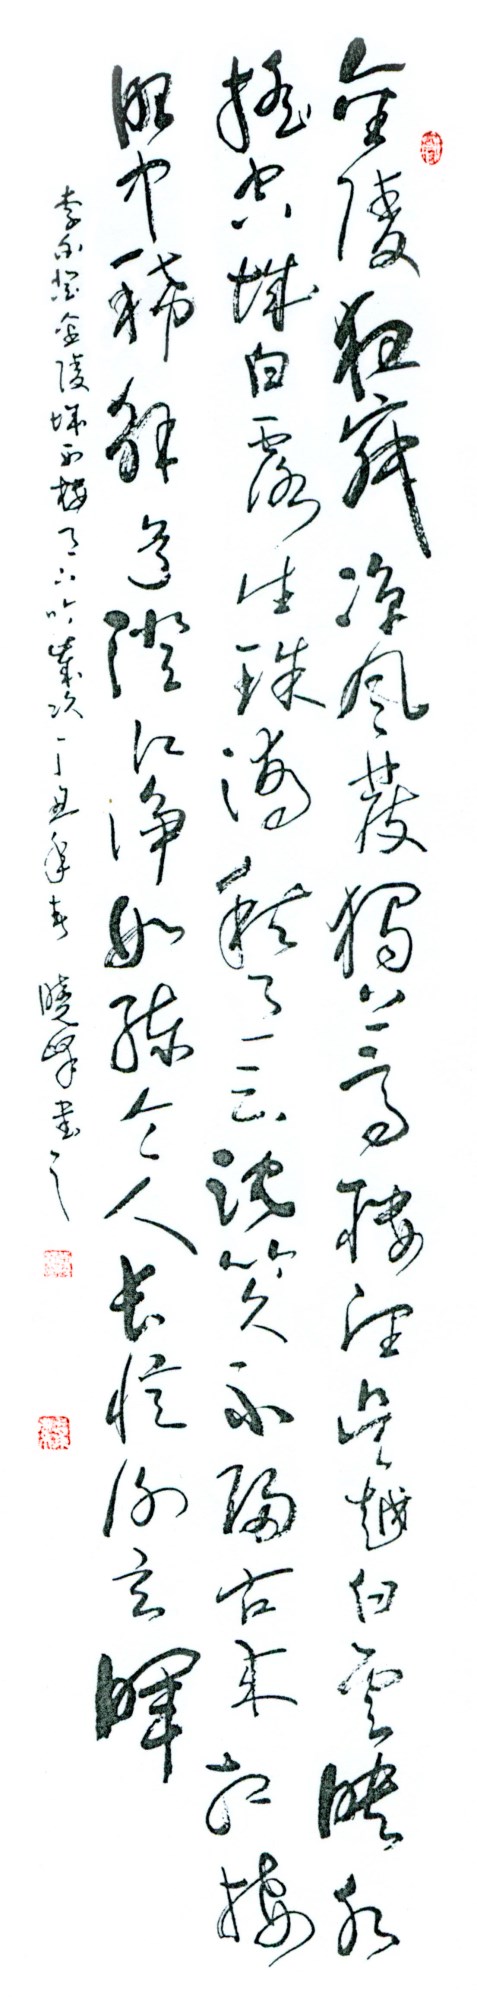 金陵夜寂凉风發獨上高楼望吴越白云映水
摇空城白露垂珠滴秋月月下沈吟久不歸古来相接
眼中稀解道澄江净如練令人長憶谢玄暉
李白登金陵城西楼月下吟歲次丁丑年春 曉峰書之